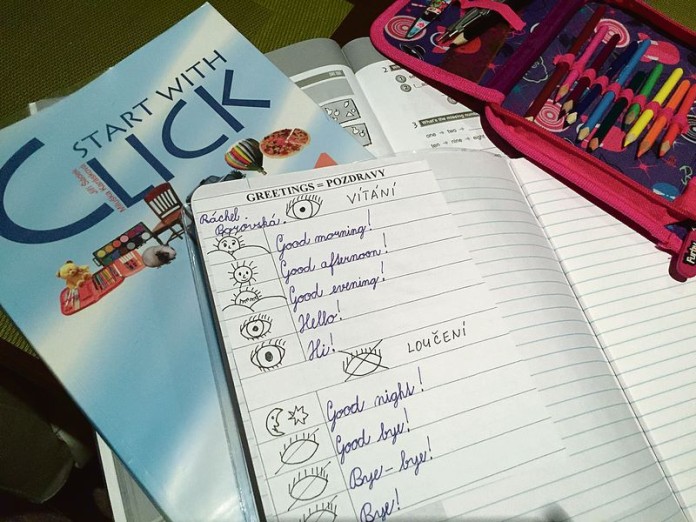 START WITH
CLICK
GREETINGS = POZDRAVY
VÍTÁNÍ
Ráchel
Good morning!
Good afternoon!
Good evening!
Hello!
Hi!
LOUČENÍ
Good night!
Good bye!
Bye-bye!
Bye!
3 What's the missing
one → two →
ten → nine → eight